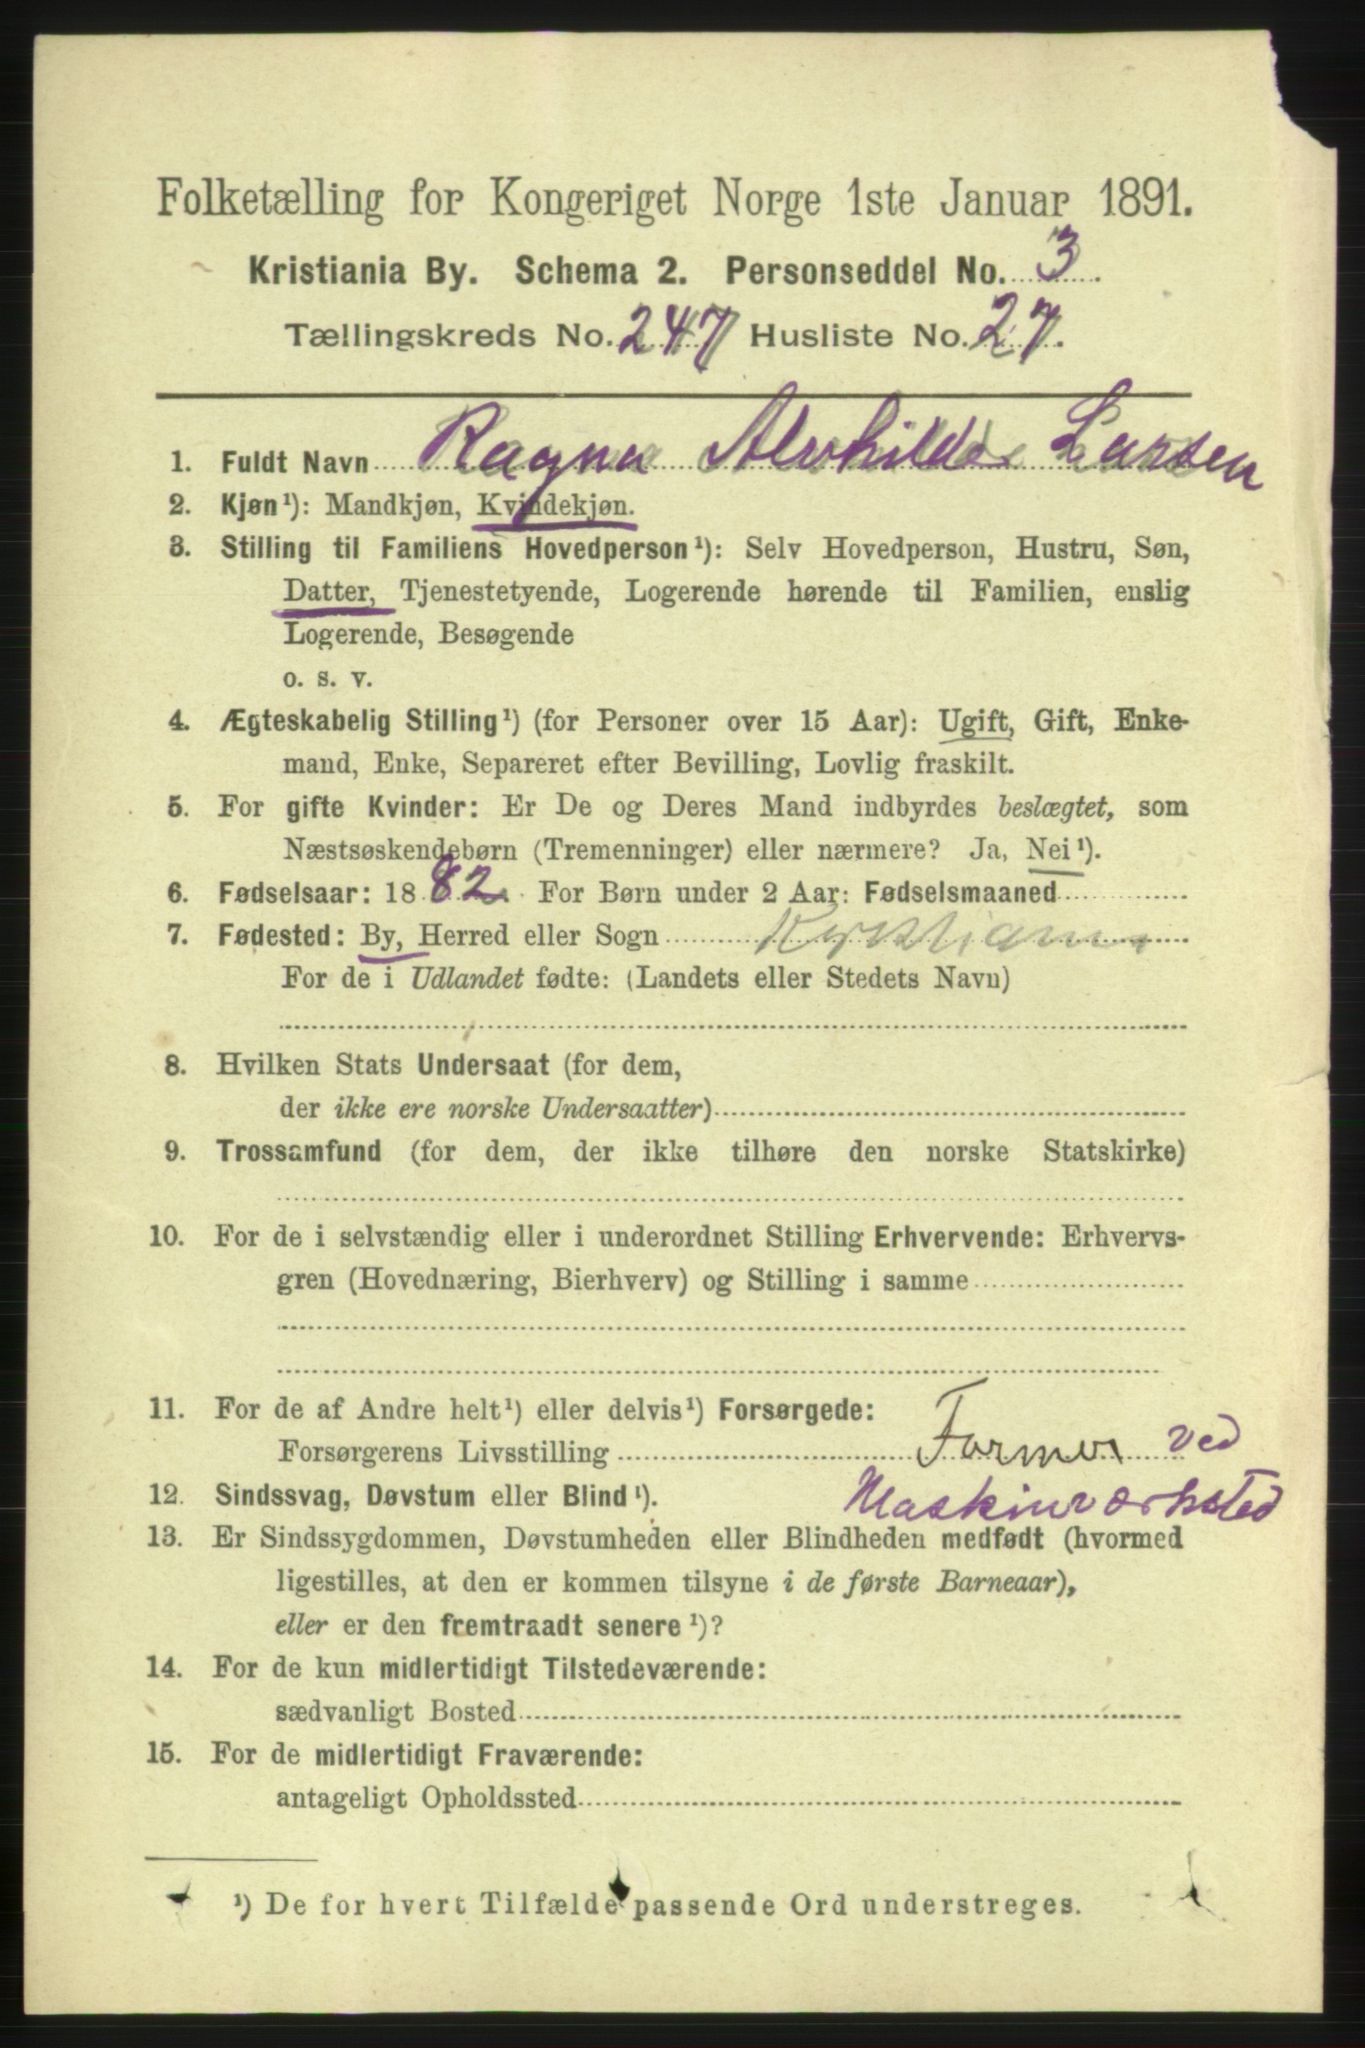 Folketælling for Kongeriget Norge 1ste Januar 1891.
Kristiania By. Schema 2. Personseddel No. 3.
Tællingskreds No. 247 Husliste No. 27.
1. Fuldt Navn Ragna Alvhilde Larsen
2. Kjøn¹): Mandkjøn, Kvindekjøn.
3. Stilling til Familiens Hovedperson¹): Selv Hovedperson, Hustru, Søn,
Datter, Tjenestetyende, Logerende hørende til Familien, enslig
Logerende, Besøgende
o. s. v.
4. Ægteskabelig Stilling¹) (for Personer over 15 Aar): Ugift, Gift, Enke-
mand, Enke, Separeret efter Bevilling, Lovlig fraskilt.
5. For gifte Kvinder: Er De og Deres Mand indbyrdes beslægtet, som
Næstsøskendebørn (Tremenninger) eller nærmere? Ja, Nei¹).
6. Fødselsaar: 1882. For Børn under 2 Aar: Fødselsmaaned
7. Fødested: By, Herred eller Sogn Kristiania
For de i Udlandet fødte: (Landets eller Stedets Navn)
8. Hvilken Stats Undersaat (for dem,
der ikke ere norske Undersaatter)
9. Trossamfund (for dem, der ikke tilhøre den norske Statskirke)
10. For de i selvstændig eller i underordnet Stilling Erhvervende: Erhvervs-
gren (Hovednæring, Bierhverv) og Stilling i samme
11. For de af Andre helt¹) eller delvis¹) Forsørgede:
Forsørgerens Livsstilling Former ved
Maskinværksted
12. Sindssvag, Døvstum eller Blind¹).
13. Er Sindssygdommen, Døvstumheden eller Blindheden medfødt (hvormed
ligestilles, at den er kommen tilsyne i de første Barneaar),
eller er den fremtraadt senere¹)?
14. For de kun midlertidigt Tilstedeværende:
sædvanligt Bosted
15. For de midlertidigt Fraværende:
antageligt Opholdssted
¹) De for hvert Tilfælde passende Ord understreges.